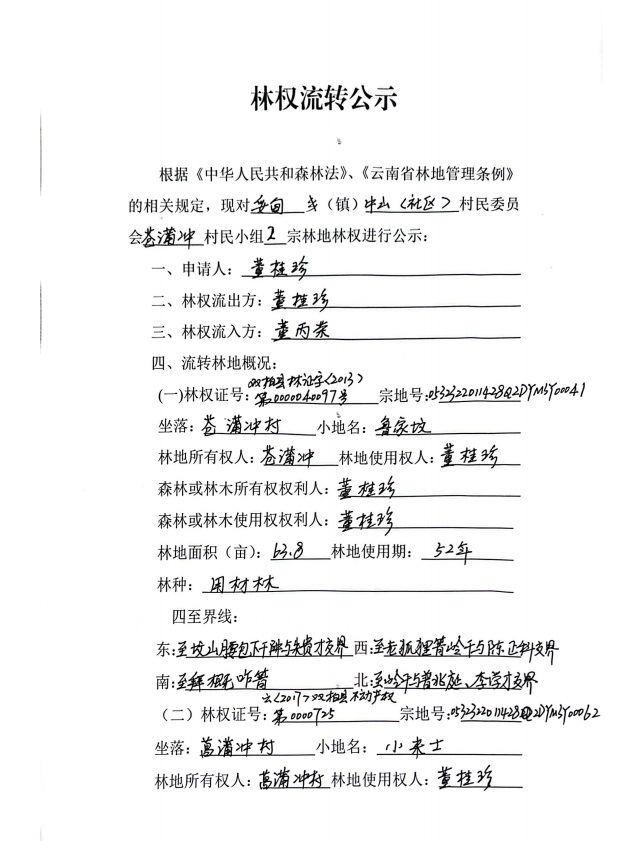 林权流转公示
根据《中华人民共和森林法》、《云南省林地管理条例》
的相关规定，现对妥甸 乡（镇）中山（社区）村民委员
会苍蒲冲 村民小组2 宗林地林权进行公示：
一、申请人：董桂珍
二、林权流出方：董桂珍
三、林权流入方：董丙荣
四、流转林地概况：
双柏县林证字（2013）
(一)林权证号：第0000040097号 宗地号：
坐落：苍蒲冲村 小地名：鲁家坟
林地所有权人：苍蒲冲 林地使用权人：董桂珍
森林或林木所有权权利人：董桂珍
森林或林木使用权权利人：董桂珍
林地面积（亩）：63.8 林地使用期：52年
林种：用材林
四至界线：
东：至坟山 西：至老狐狸箐岭干与陈正科交界
南：至 北：至岭干与普兆庭、李学才交界
云（2017）双柏县不动产权
（二）林权证号：第0000725 宗地号：
坐落：菖蒲冲村 小地名：小来士
林地所有权人：菖蒲冲村 林地使用权人：董桂珍